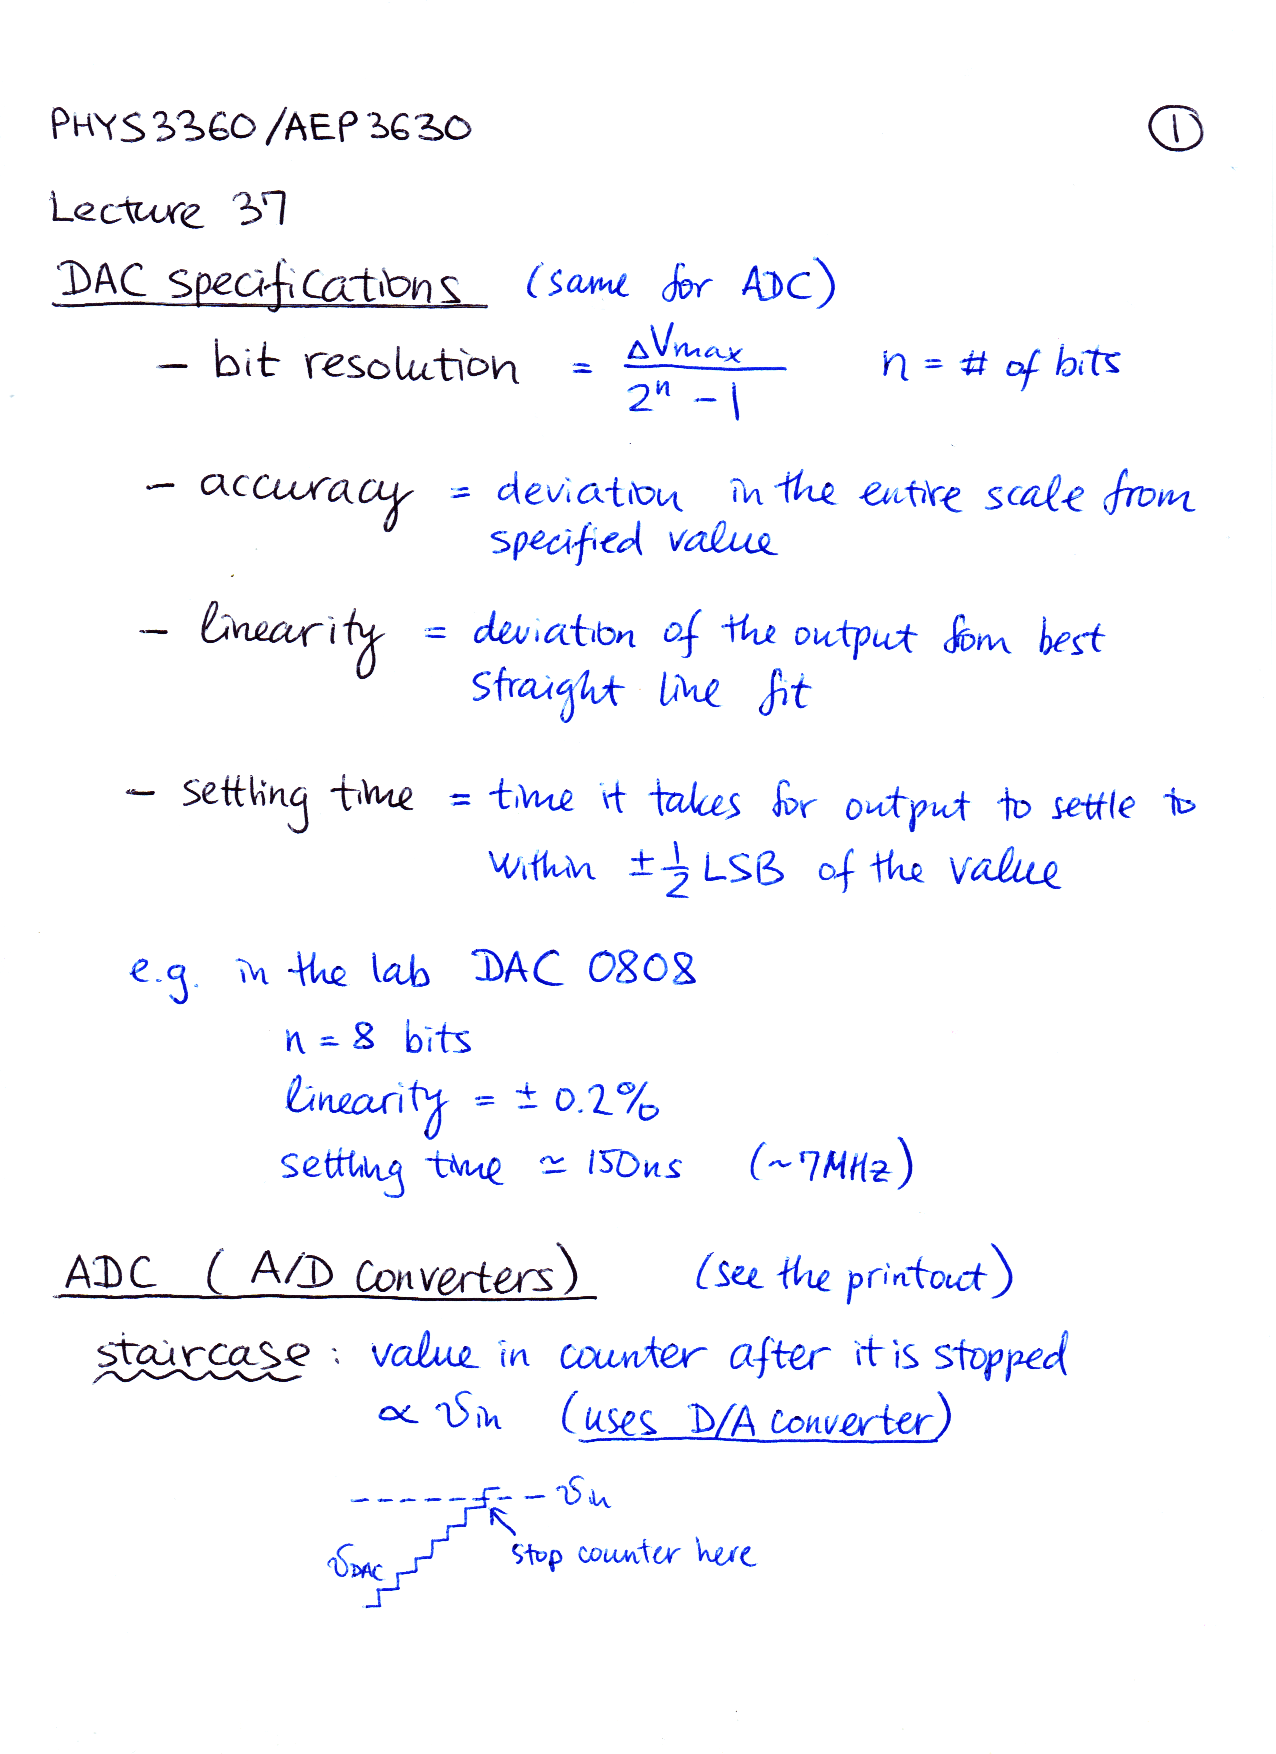 PHYS3360/AEP3630
1
Lecture 37
DAC specifications (same for ADC)
– bit resolution = ΔVmax / 2ⁿ – 1 n = # of bits
– accuracy = deviation in the entire scale from
specified value
– linearity = deviation of the output fom best
straight line fit
– settling time = time it takes for output to settle to
within ± 1/2 LSB of the value
e.g. in the lab DAC 0808
n = 8 bits
linearity = ± 0.2%
settling time ≃ 150ns (~7MHz)
ADC (A/D converters) (see the printout)
staircase: value in counter after it is stopped
∝ Vin (uses D/A converter)
Vin
stop counter here
VDAC